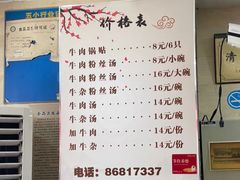 五小行业
价格表
牛肉锅贴 8元/6只
牛肉粉丝汤 8元/小碗
牛肉粉丝汤 16元/大碗
牛杂粉丝汤 16元/碗
牛肉汤 14元/碗
牛杂汤 14元/碗
加牛肉 14元/份
加牛杂 14元/份
电话：86817337
清